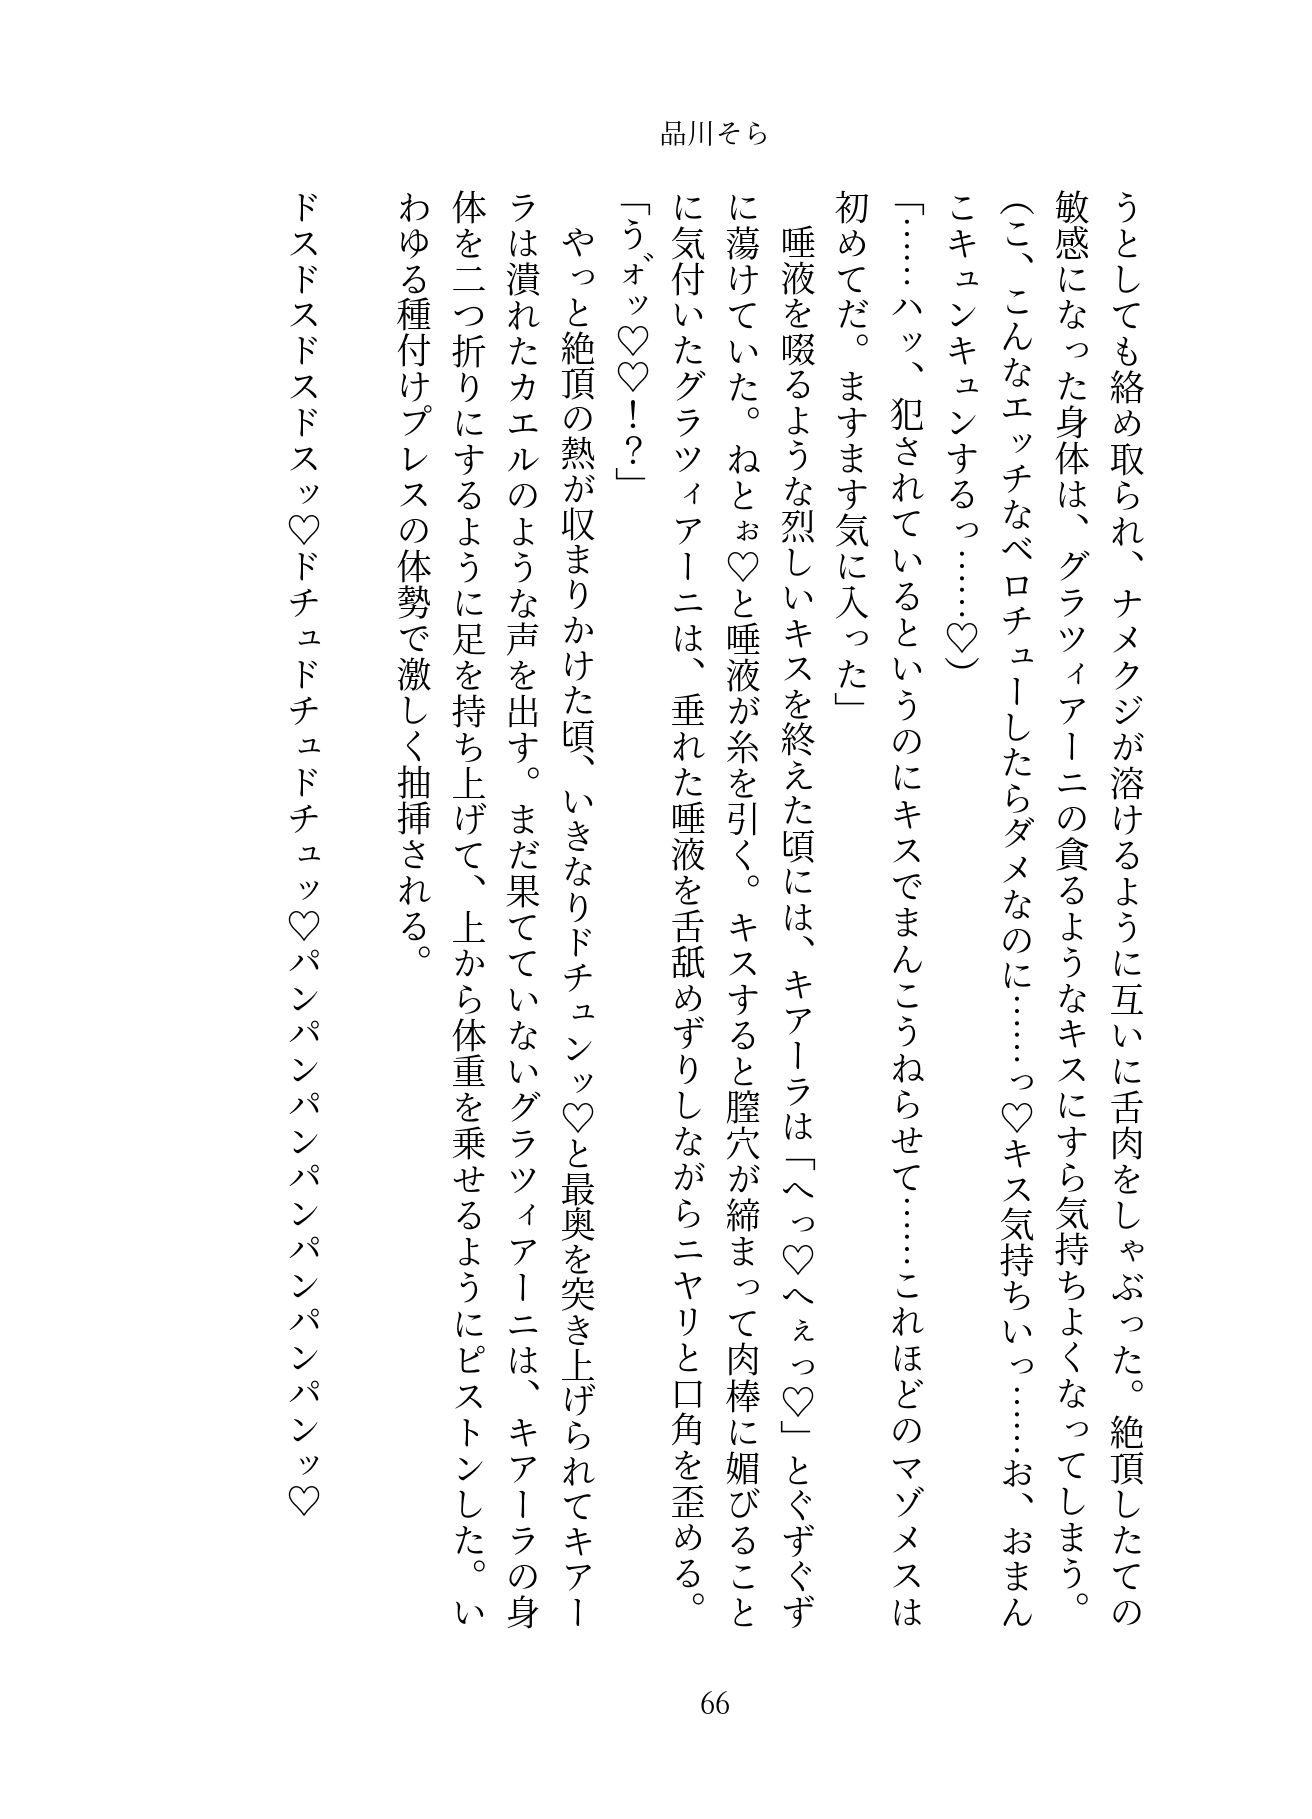 品川そら
うとしても絡め取られ、ナメクジが溶けるように互いに舌肉をしゃぶった。絶頂したての
敏感になった身体は、グラツィアーニの貪るようなキスにすら気持ちよくなってしまう。
(こ、こんなエッチなベロチューしたらダメなのに……っ♡キス気持ちいっ……お、おまん
こキュンキュンするっ……♡)
「……ハッ、犯されているというのにキスでまんこうねらせて……これほどのマゾメスは
初めてだ。ますます気に入った」
　唾液を啜るような烈しいキスを終えた頃には、キアーラは「へっ♡へぇっ♡」とぐずぐず
に蕩けていた。ねとぉ♡と唾液が糸を引く。キスすると膣穴が締まって肉棒に媚びること
に気付いたグラツィアーニは、垂れた唾液を舌舐めずりしながらニヤリと口角を歪める。
「ぅ゛ォッ♡♡！？」
　やっと絶頂の熱が収まりかけた頃、いきなりドチュンッ♡と最奥を突き上げられてキアー
ラは潰れたカエルのような声を出す。まだ果てていないグラツィアーニは、キアーラの身
体を二つ折りにするように足を持ち上げて、上から体重を乗せるようにピストンした。い
わゆる種付けプレスの体勢で激しく抽挿される。
ドスドスドスドスッ♡ドチュドチュドチュッ♡パンパンパンパンパンパンパンッ♡
66